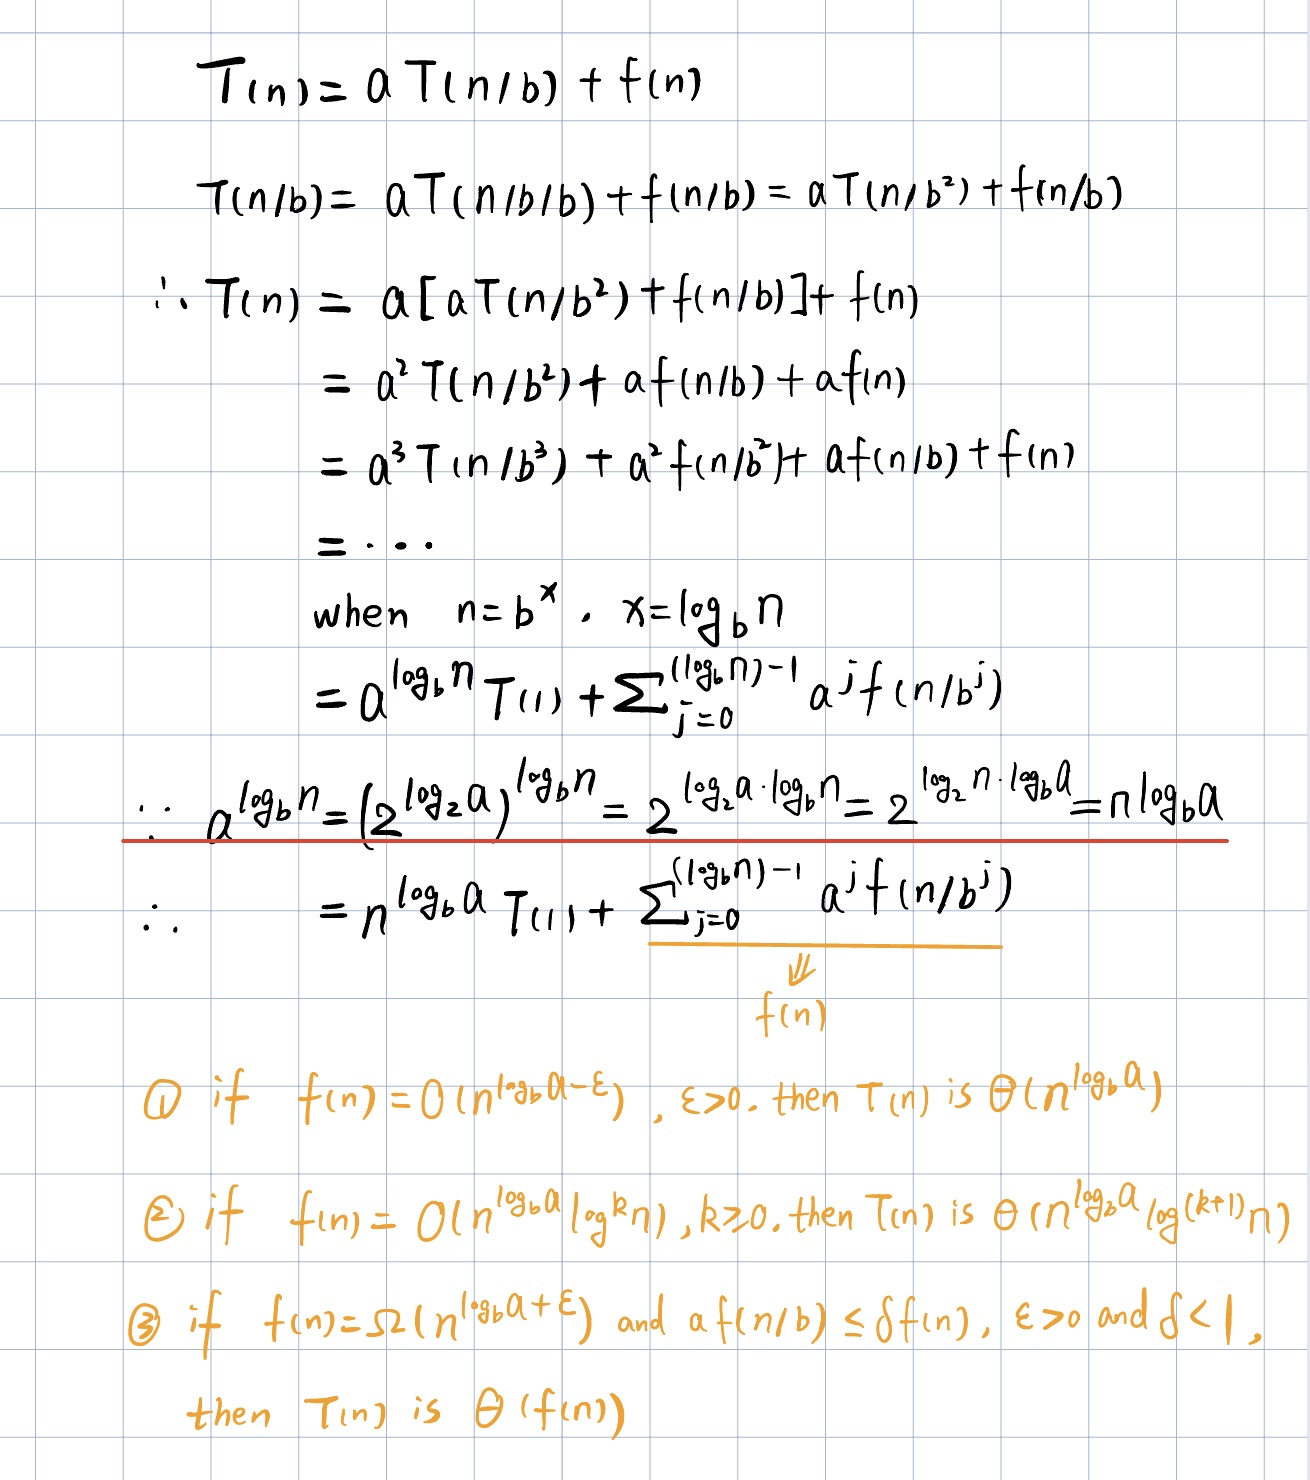 T(n) = a T(n/b) + f(n)
T(n/b) = a T(n/b/b) + f(n/b) = a T(n/b²) + f(n/b)
∴ T(n) = a[a T(n/b²) + f(n/b)] + f(n)
= a² T(n/b²) + a f(n/b) + a f(n)
= a³ T(n/b³) + a² f(n/b²) + a f(n/b) + f(n)
= ...
when n = b^x . x = log_b n
= a^{log_b n} T(1) + Σ_{j=0}^{(log_b n)-1} a^j f(n/b^j)
∵ a^{log_b n} = (2^{log_2 a})^{log_b n} = 2^{log_2 a · log_b n} = 2^{log_2 n · log_b a} = n^{log_b a}
∴ = n^{log_b a} T(1) + Σ_{j=0}^{(log_b n)-1} a^j f(n/b^j)
⇓
f(n)
① if f(n) = O(n^{log_b a - ε}), ε>0. then T(n) is θ(n^{log_b a})
② if f(n) = O(n^{log_b a} log^k n), k≥0. then T(n) is θ(n^{log_b a} log^{(k+1)} n)
③ if f(n) = Ω(n^{log_b a + ε}) and a f(n/b) ≤ δf(n), ε>0 and δ<1,
then T(n) is θ(f(n))